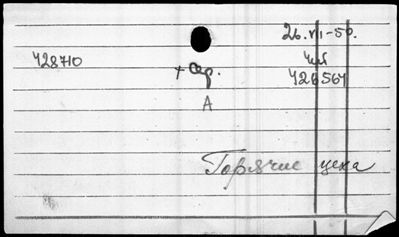 26.VII-50.
428710
А
426564
Горячие цеха